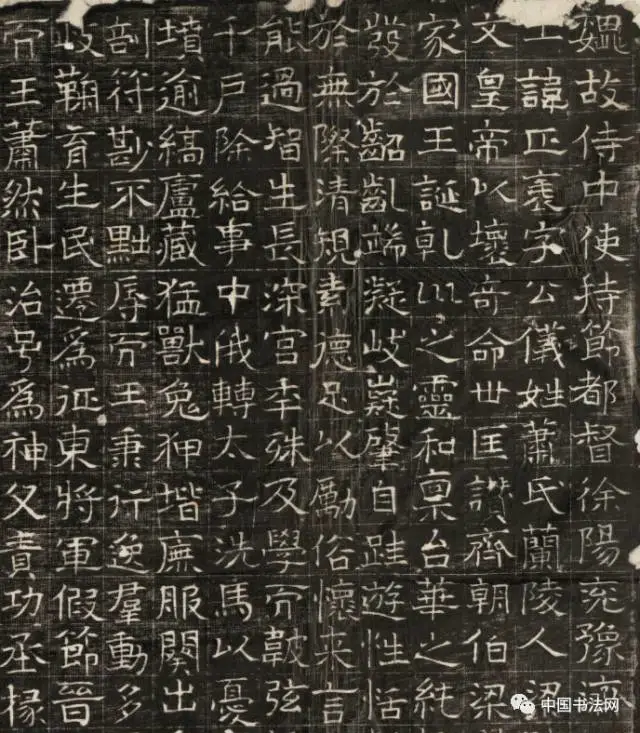 魏故侍中使持節都督徐陽兗豫濟
王諱正表字公儀姓蕭氏蘭陵人梁
文皇帝以壞奇命世匡讚齊朝伯梁
家國王誕乹巛之靈和稟台華之純
發於齠齓端凝岐嶷肇自跬遊性恬
於無際清規素德足以勵俗懷来言
能過智生長深宮率殊及學而韍弦
千戶除給事中俄轉太子洗馬以憂
墳逾縞廬藏猛獸兔狎堦廡服闋出
剖符尠不點辱而王秉行逸羣動多
政鞠育生民遷爲征東將軍假節晉
而王蕭然卧治号爲神父責功丞掾
中国书法网